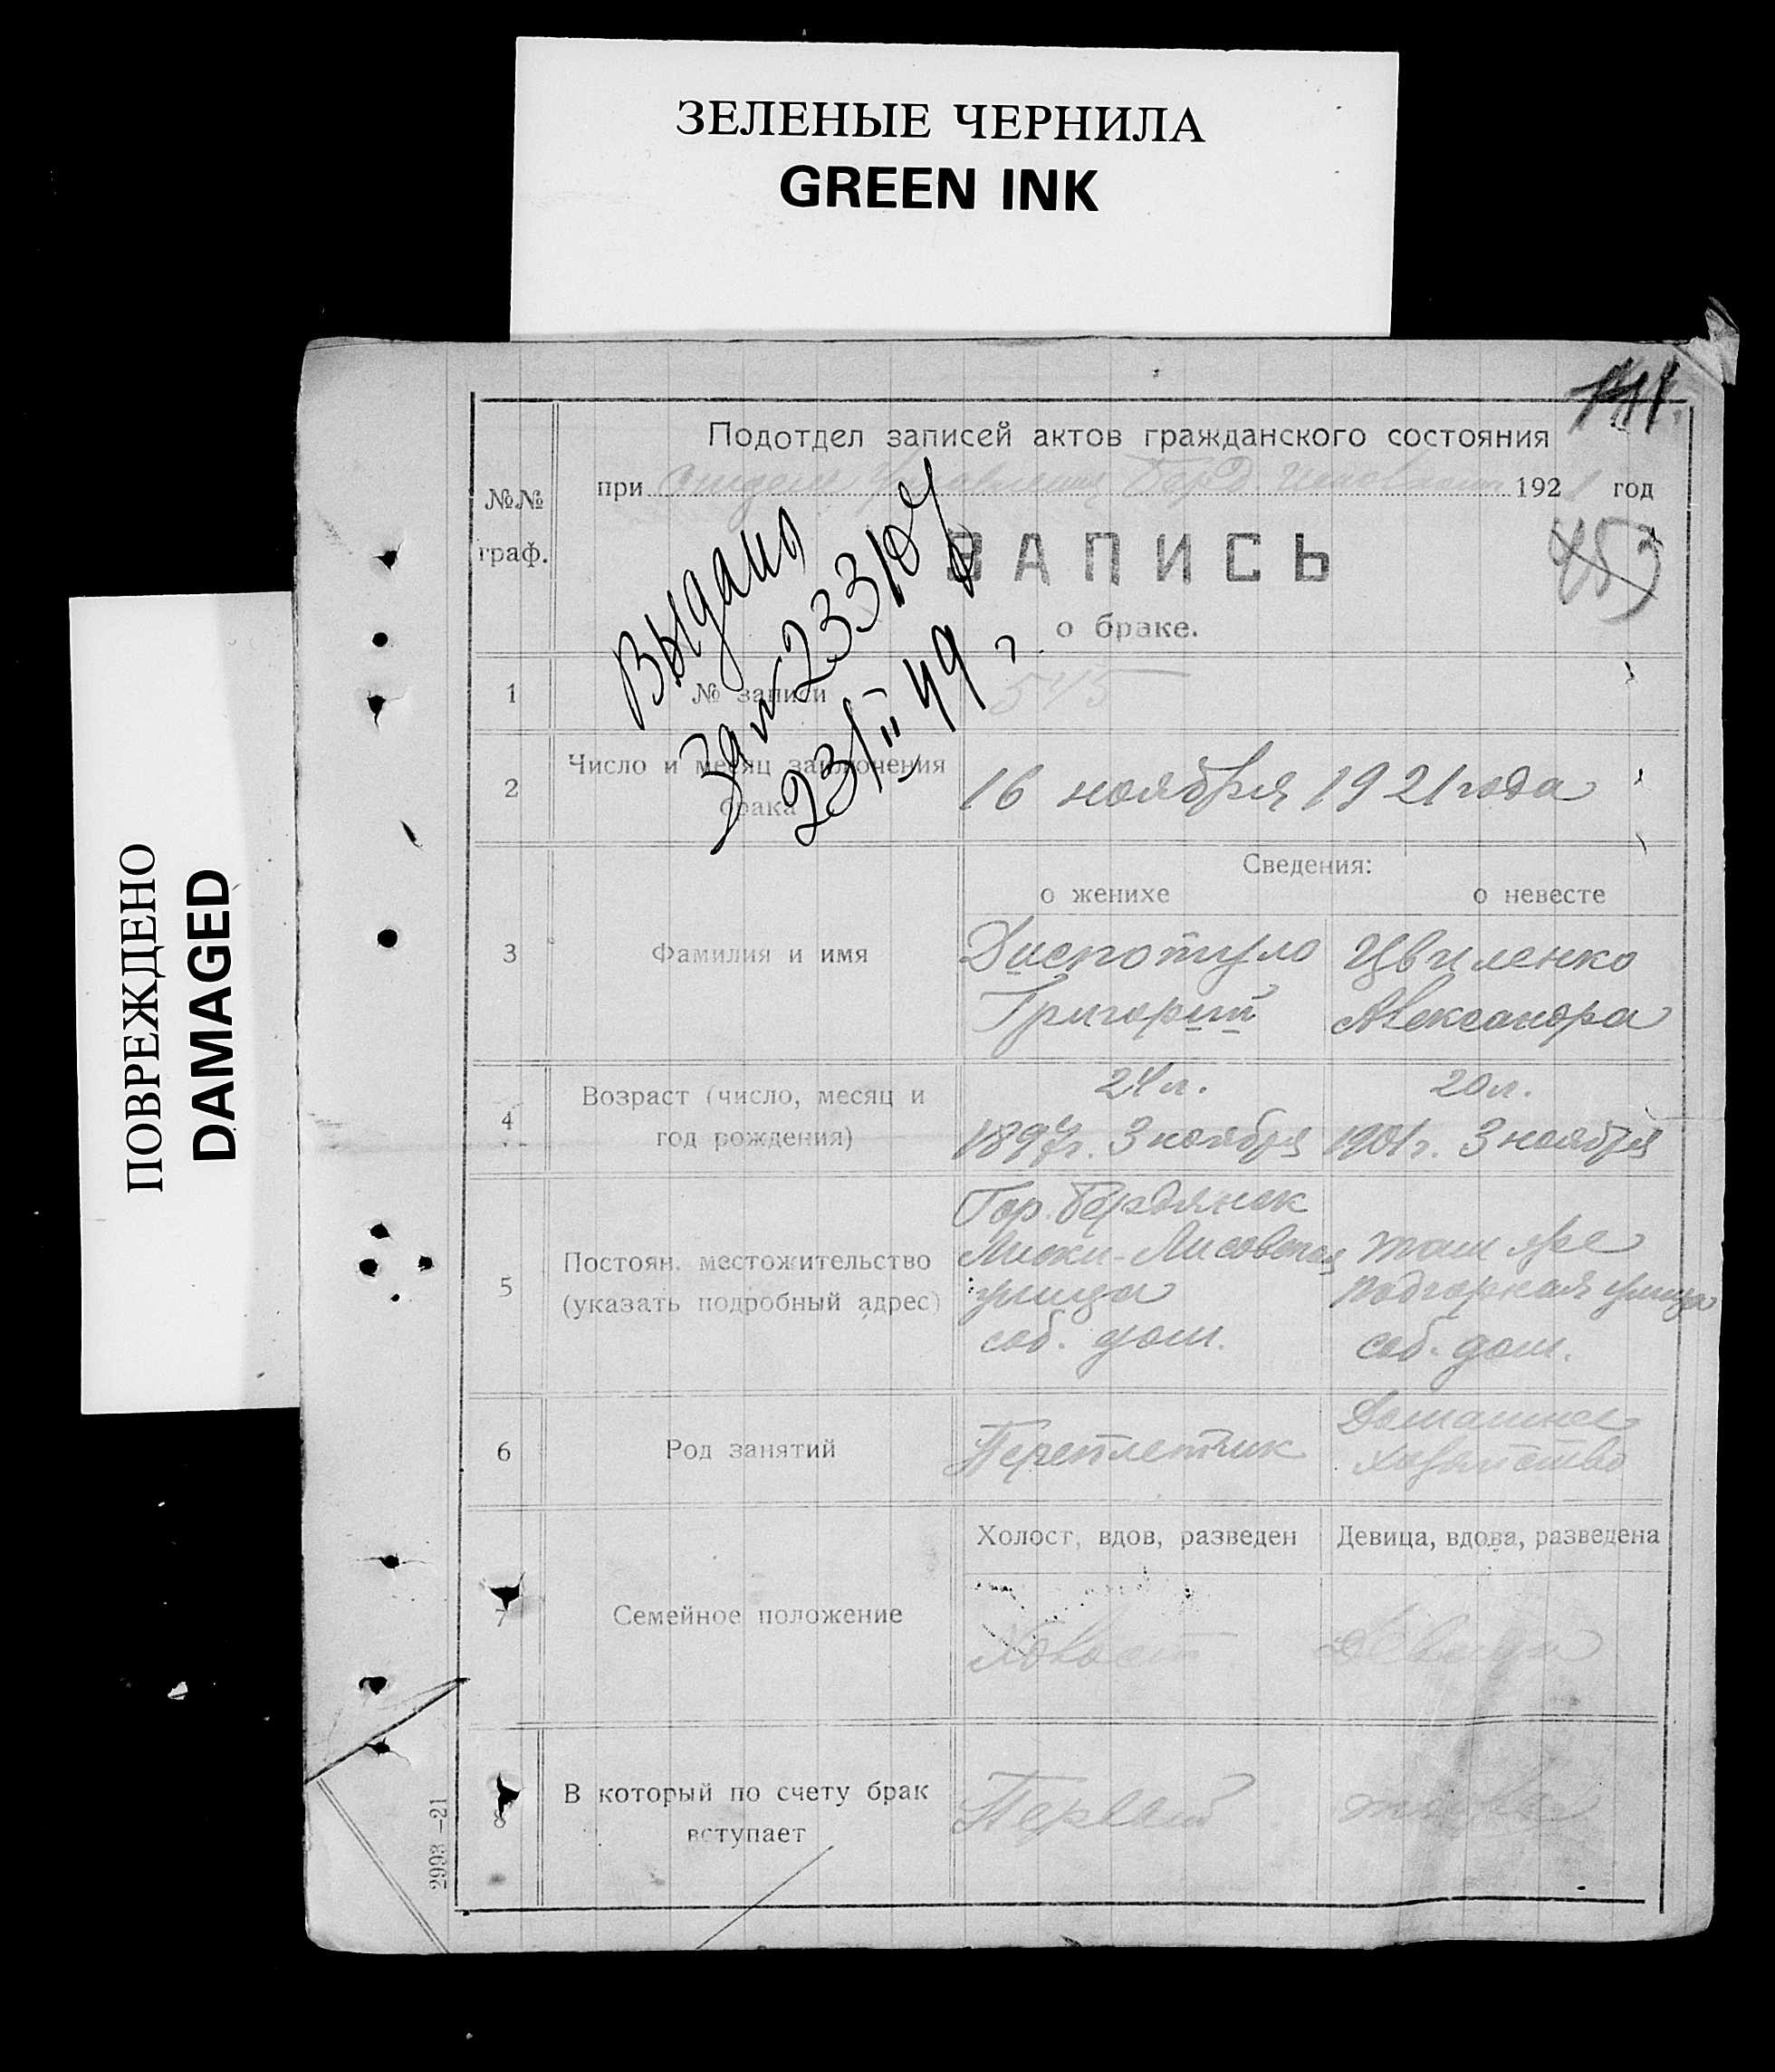 ЗЕЛЕНЫЕ ЧЕРНИЛА
GREEN INK
ПОВРЕЖДЕНО
DAMAGED
Подотдел записей актов гражданского состояния
при 1921 год
№№
граф.
ЗАПИСЬ
453
о браке.
Выдано
за № 233107
23/II 49 г.
1
№ записи
545
2
Число и месяц заключения
брака
16 ноября 1921 года
Сведения:
о женихе
о невесте
3
Фамилия и имя
Диспотуло
Григорий
Цвиленко
Александра
4
Возраст (число, месяц и
год рождения)
24 л.
1897 г. 3 ноября
20 л.
1901 г. 3 ноября
5
Постоян. местожительство
(указать подробный адрес)
Гор. Бердянск
Лиски-Лисовская
улица
соб. дом.
там же
Подгорная улица
соб. дом.
6
Род занятий
Переплетчик
Домашнее
хозяйство
Холост, вдов, разведен
Девица, вдова, разведена
7
Семейное положение
Холост
Девица
8
В который по счету брак
вступает
Первый
2993—21